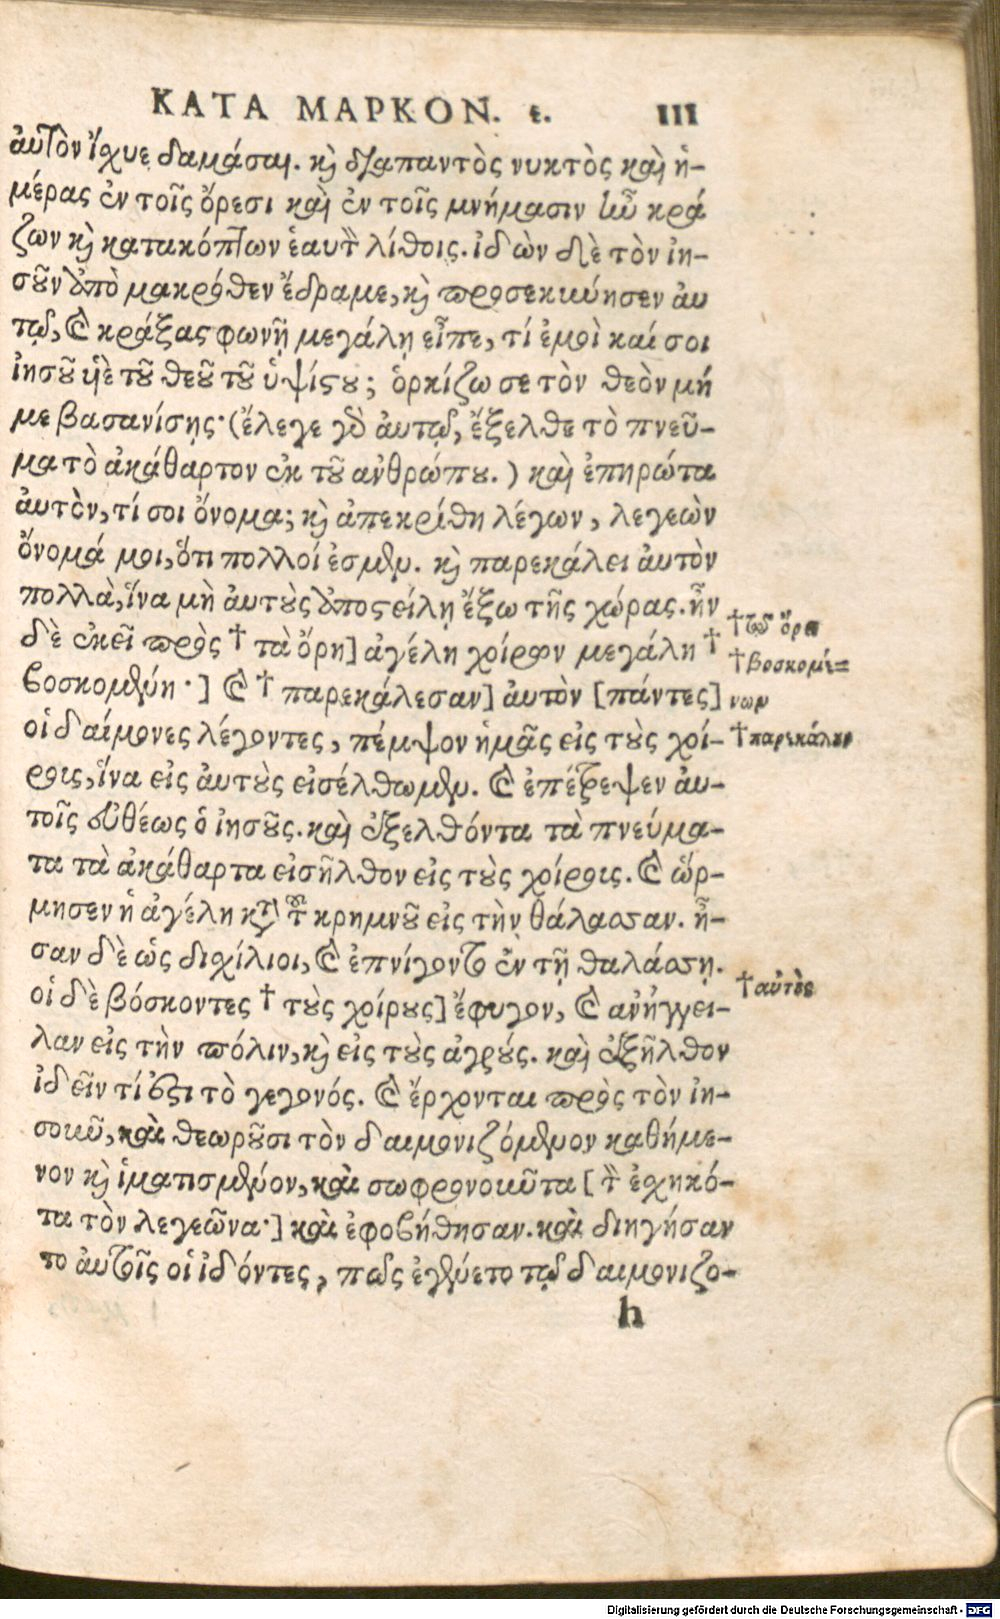 ΚΑΤΑ ΜΑΡΚΟΝ. ε. 111
ἀυτὸν ἴχυε δαμάσαι. κὶ διαπαντὸς νυκτὸς καὶ ἡ-
μέρας ἐν τοῖς ὄρεσι καὶ ἐν τοῖς μνήμασιν ἦν κρά
ζων κὶ κατακόπτων ἑαυτὸν λίθοις. ἰδὼν δὲ τὸν ἰη-
σοῦν ἀπὸ μακρόθεν ἔδραμε, κὶ προσεκύνησεν ἀυ
τῷ, καὶ κράξας φωνῇ μεγάλῃ εἶπε, τί ἐμοὶ καί σοι
ἰησοῦ υἱὲ τοῦ θεοῦ τοῦ ὑψίστου; ὁρκίζω σε τὸν θεὸν μή
με βασανίσῃς·(ἔλεγε γὰρ ἀυτῷ, ἔξελθε τὸ πνεῦ-
μα τὸ ἀκάθαρτον ἐκ τοῦ ἀνθρώπου.) καὶ ἐπηρώτα
ἀυτὸν, τί σοι ὄνομα; κὶ ἀπεκρίθη λέγων, λεγεὼν
ὄνομά μοι, ὅτι πολλοί ἐσμεν. κὶ παρεκάλει ἀυτὸν
πολλὰ, ἵνα μὴ ἀυτοὺς ἀποστείλῃ ἔξω τῆς χώρας. ἦν
δὲ ἐκεῖ πρὸς † τὰ ὄρη] ἀγέλη χοίρων μεγάλη †
βοσκομένη·] καὶ † παρεκάλεσαν] ἀυτὸν [πάντες]
οἱ δαίμονες λέγοντες, πέμψον ἡμᾶς εἰς τοὺς χοί-
ροις, ἵνα εἰς ἀυτοὺς εἰσέλθωμεν. καὶ ἐπέτρεψεν ἀυ-
τοῖς ευθέως ὁ ἰησοῦς. καὶ ἐξελθόντα τὰ πνεύμα-
τα τὰ ἀκάθαρτα εἰσῆλθον εἰς τοὺς χοίροις. καὶ ὥρ-
μησεν ἡ ἀγέλη κατὰ τοῦ κρημνοῦ εἰς τὴν θάλασσαν. ἦ-
σαν δὲ ὡς διχίλιοι, καὶ ἐπνίγοντο ἐν τῇ θαλάσσῃ.
οἱ δὲ βόσκοντες † τοὺς χοίρους] ἔφυγον, καὶ ἀνήγγει-
λαν εἰς τὴν πόλιν, κὶ εἰς τοὺς ἀγρούς. καὶ ἐξῆλθον
ἰδεῖν τί ἐστι τὸ γεγονός. καὶ ἔρχονται πρὸς τὸν ἰη-
σοιῦ, καὶ θεωροῦσι τὸν δαιμονιζόμενον καθήμε-
νον κὶ ἱματισμένον, καὶ σωφρονοιῦτα [τὸν ἐχηκό-
τα τὸν λεγεῶνα·] καὶ ἐφοβήθησαν. καὶ διηγήσαν
το ἀυτοῖς οἱ ἰδόντες, πῶς ἐγένετο τῷ δαιμονιζο-
h
†τῷ ὄρει
†βοσκομέ=
νων
†παρεκάλουν
†αὐτοὺς
Digitalisierung gefördert durch die Deutsche Forschungsgemeinschaft - DFG